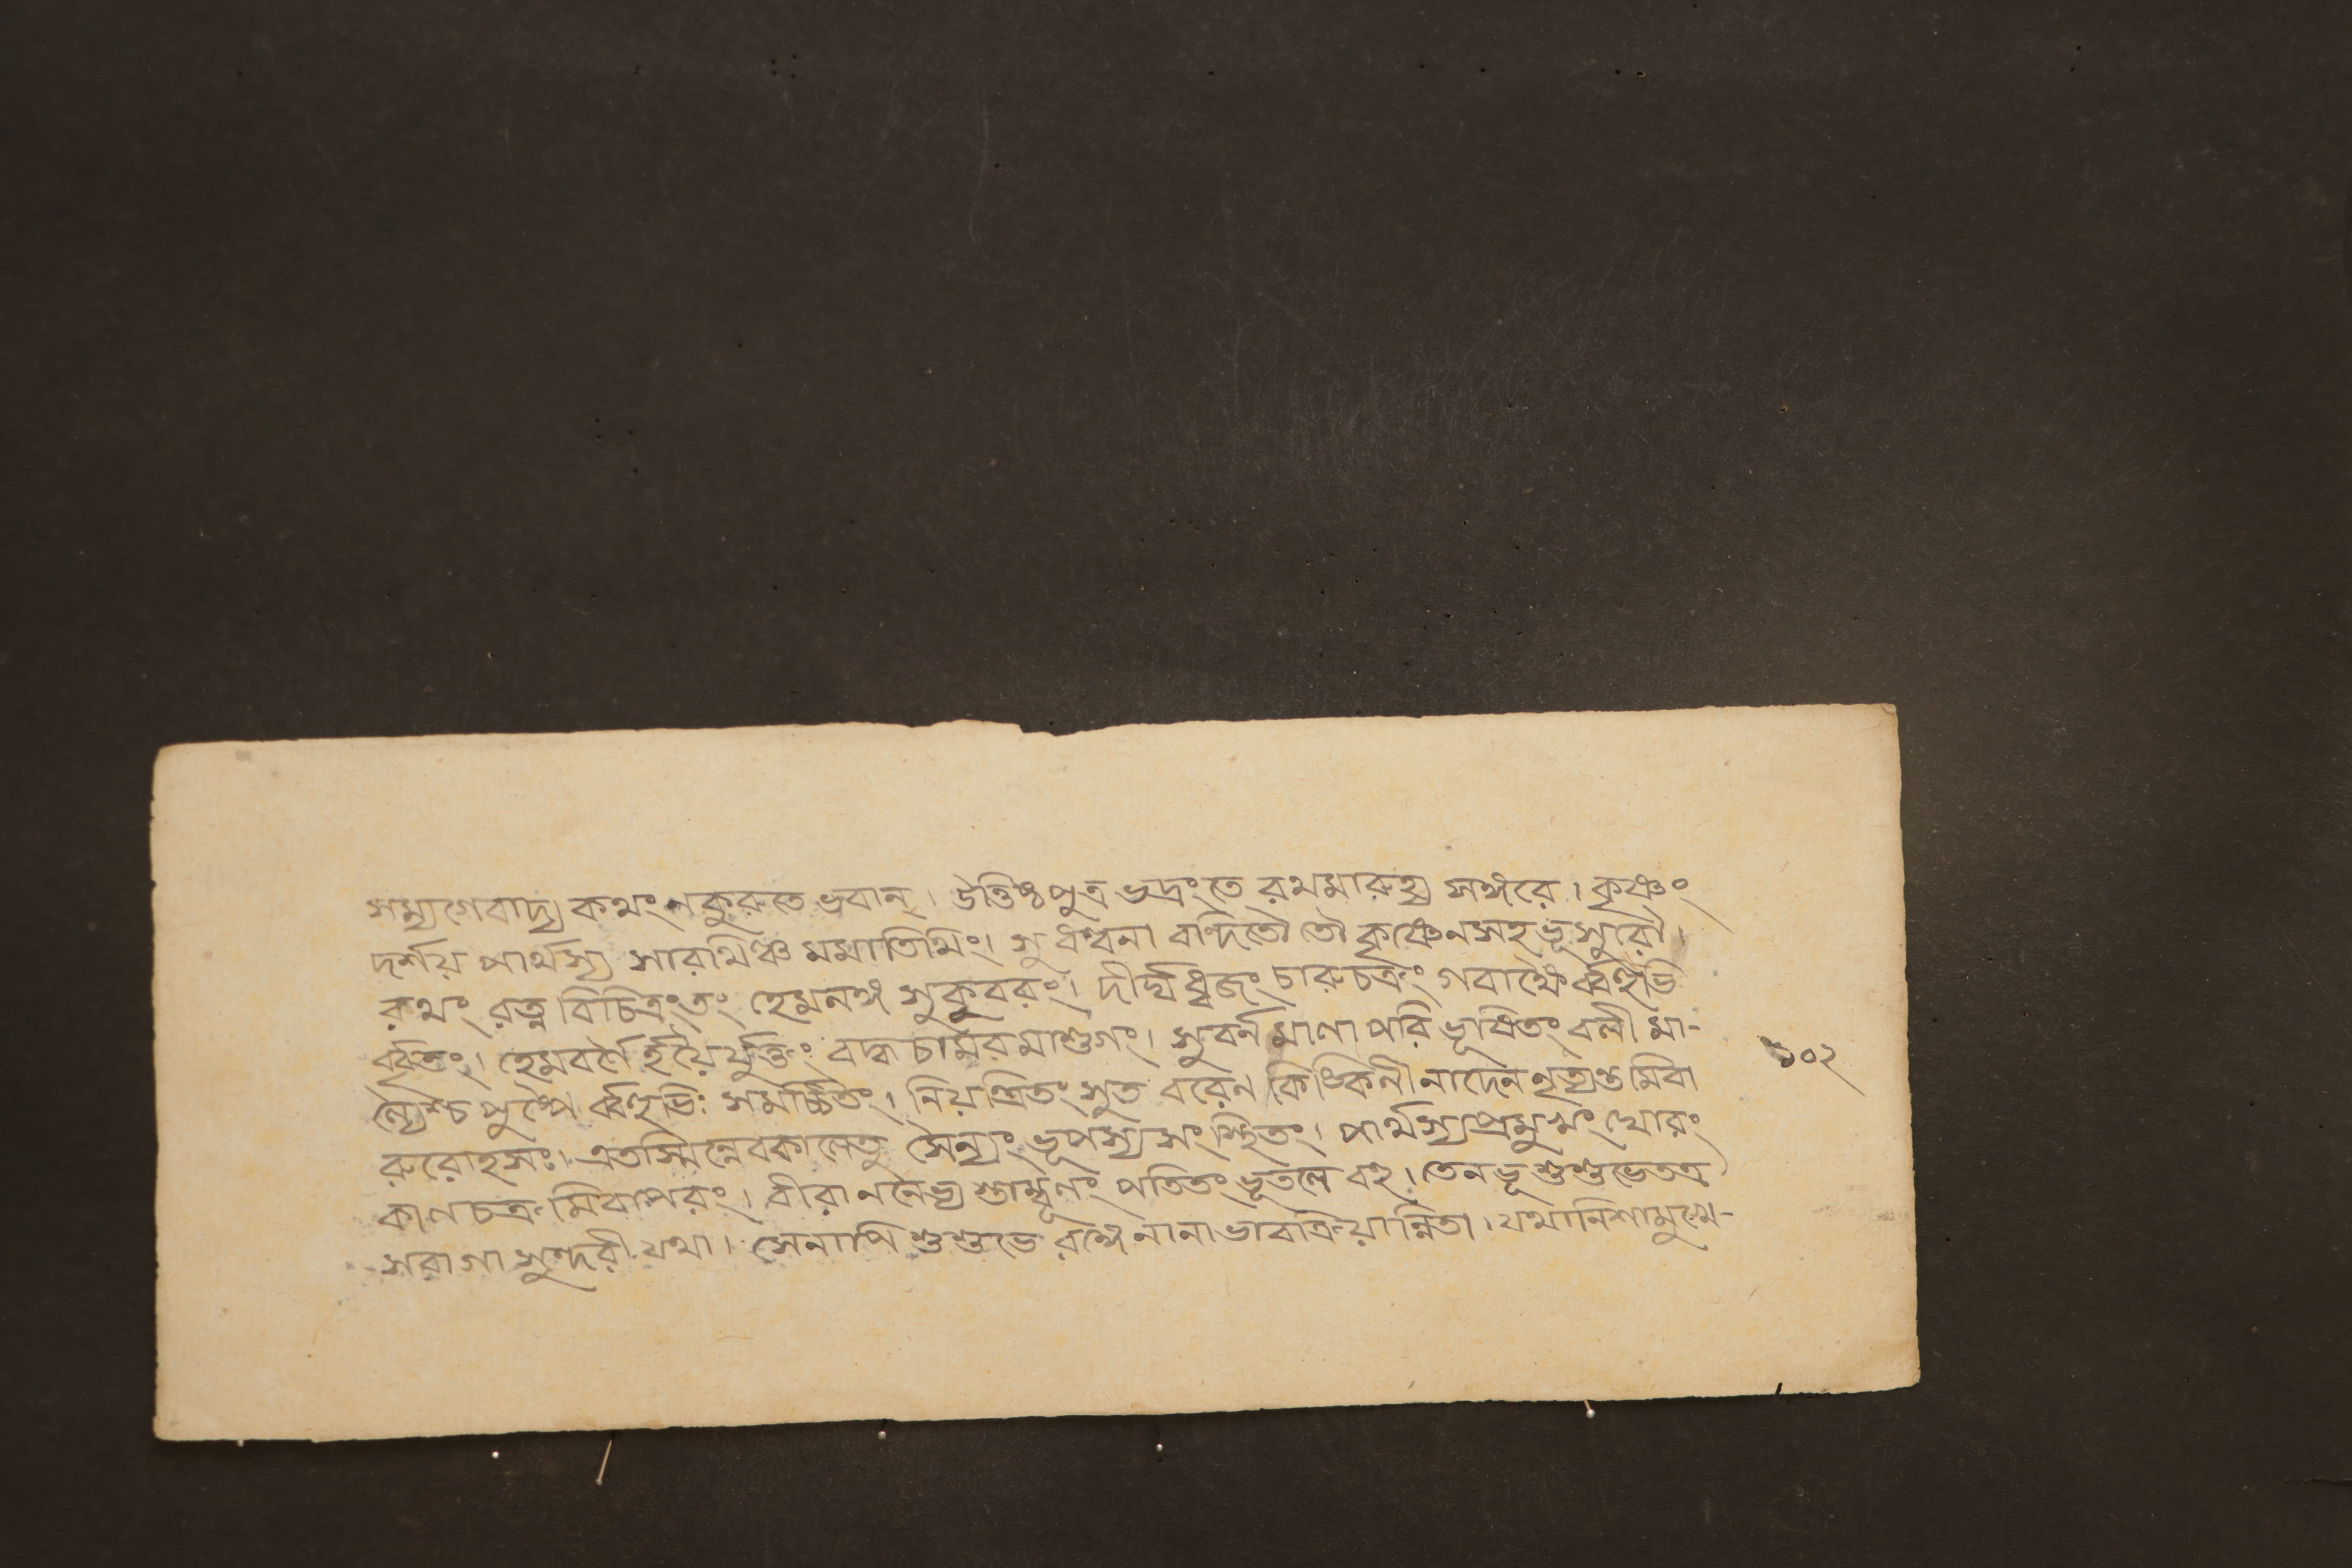 সম্যগেবাদ্য কথং ন কুরুতে ভবান্। উত্তিষ্ঠ পুত্র ভদ্রং তে রথমারুহ্য সঙ্গরে। কৃষ্ণং
দর্শয় পার্থস্য সারথিঞ্চ মমাতিথিং। সুধন্বনা বন্দিতৌ তৌ কৃষ্ণেন সহ ভূসুরৌ।
রথং রত্ন বিচিত্রং তং হেমনঙ্গ সুকুবরং। দীর্ঘধ্বজং চারুচক্রং গবাক্ষৈর্ব্বহুভি
র্বৃতং। হেমবর্ণৈর্হয়ৈর্যুক্তং বদ্ধ চামরমাশুগং। সুবর্ন মালা পরিভূষিতং বলী মা-
ল্যৈশ্চ পুষ্পৈ র্ব্বহুভিঃ সমর্চ্চিতং। নিয়ন্ত্রিতং সুত বরেন কিঙ্কিনী নাদেন নৃত্যন্ত মিবা
রুরোহসঃ। এতস্মিন্নেবকালেতু সৈন্যং ভূপস্য সংস্থিতং। পার্থস্যপ্রমুখং ঘোরং
কালচক্র মিবাপরং। বীরাননেভ্য স্তাম্বূলং পতিতং ভূতলে বহু। তেনভূ শুশুভেতত্র
সরাগা সুন্দরী যথা। সেনাপি শুশুভে রঙ্গে নানা ভাবক্রিয়ান্বিতা। যথানিশামুখে-
১০২